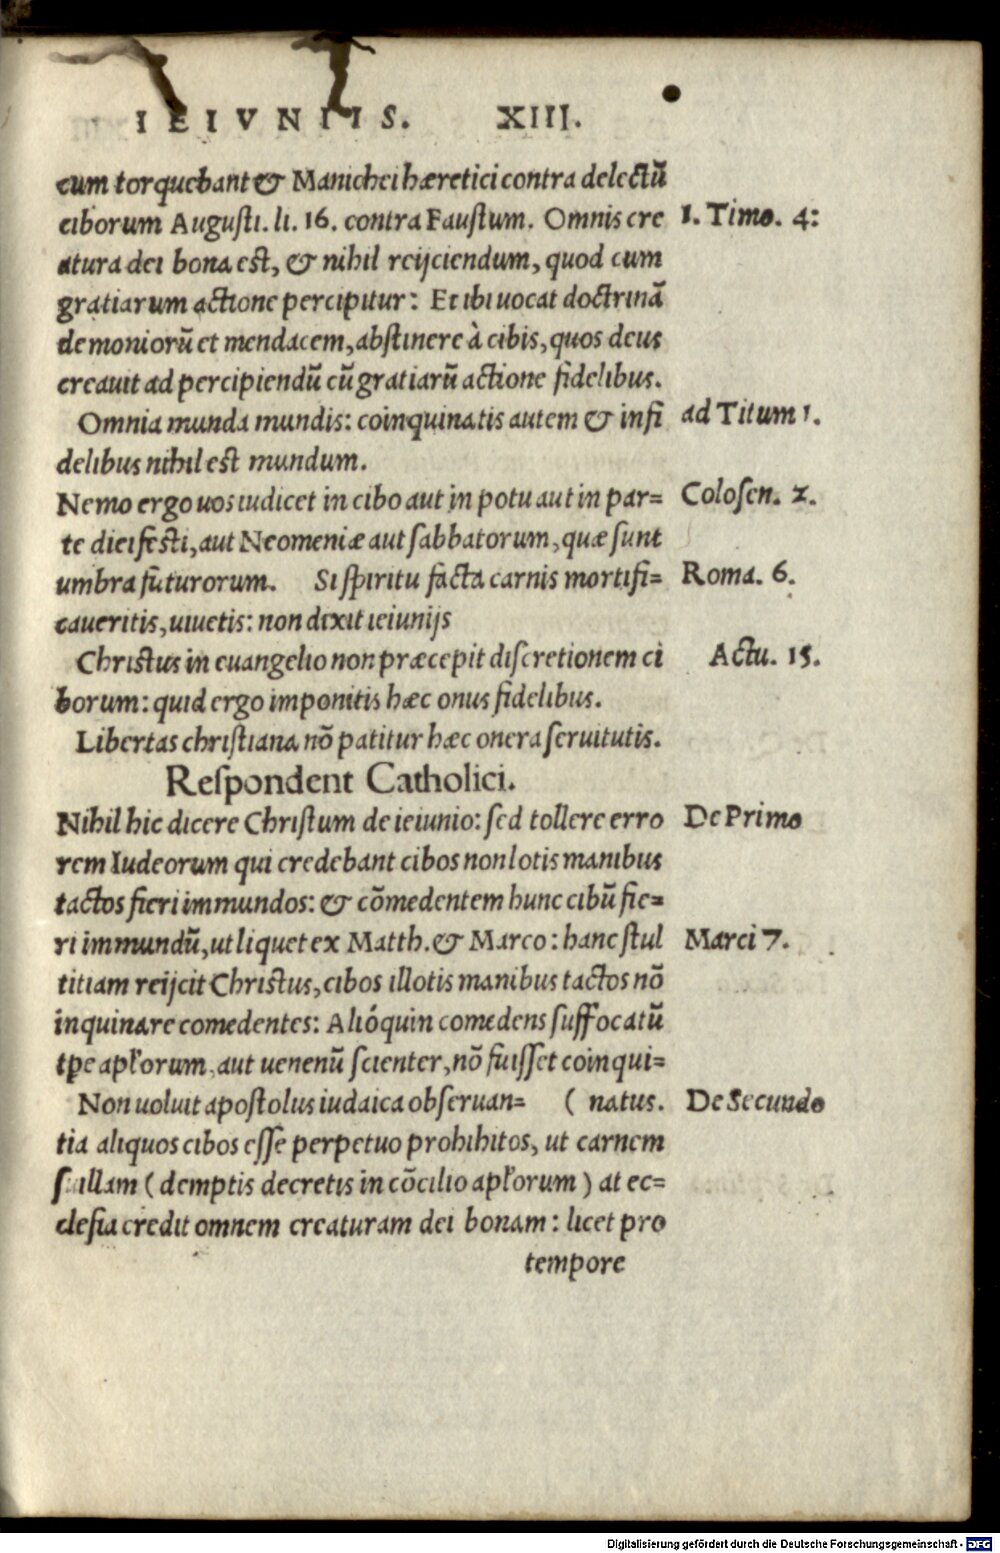 IEIVNIIS. XIII.
cum torquebant & Manichei hæretici contra delectū
ciborum Augusti. li. 16. contra Faustum. Omnis cre 1. Timo. 4:
atura dei bona est, & nihil reijciendum, quod cum
gratiarum actione percipitur: Et ibi uocat doctrinā
demoniorū et mendacem, abstinere à cibis, quos deus
creauit ad percipiendū cū gratiarū actione fidelibus.
Omnia munda mundis: coinquinatis autem & infi ad Titum 1.
delibus nihil est mundum.
Nemo ergo uos iudicet in cibo aut in potu aut in par= Colosen. 2.
te diei festi, aut Neomeniæ aut sabbatorum, quæ sunt
umbra futurorum. Si spiritu facta carnis mortifi= Roma. 6.
caueritis, uiuetis: non dixit ieiunijs
Christus in euangelio non præcepit discretionem ci Actu. 15.
borum: quid ergo imponitis hæc onus fidelibus.
Libertas christiana nō patitur hæc onera seruitutis.
Respondent Catholici.
Nihil hic dicere Christum de ieiunio: sed tollere erro De Primo
rem Iudeorum qui credebant cibos non lotis manibus
tactos fieri immundos: & cōmedentem hunc cibū fie=
ri immundū, ut liquet ex Matth. & Marco: hanc stul Marci 7.
titiam reijcit Christus, cibos illotis manibus tactos nō
inquinare comedentes: Alióquin comedens suffocatū
tpe apłorum, aut uenenū scienter, nō fuisset coinqui=
Non uoluit apostolus iudaica obseruan= ( natus. De Secundo
tia aliquos cibos esse perpetuo prohibitos, ut carnem
suillam ( demptis decretis in cōcilio apłorum ) at ec=
clesia credit omnem creaturam dei bonam: licet pro
tempore
Digitalisierung gefördert durch die Deutsche Forschungsgemeinschaft - DFG